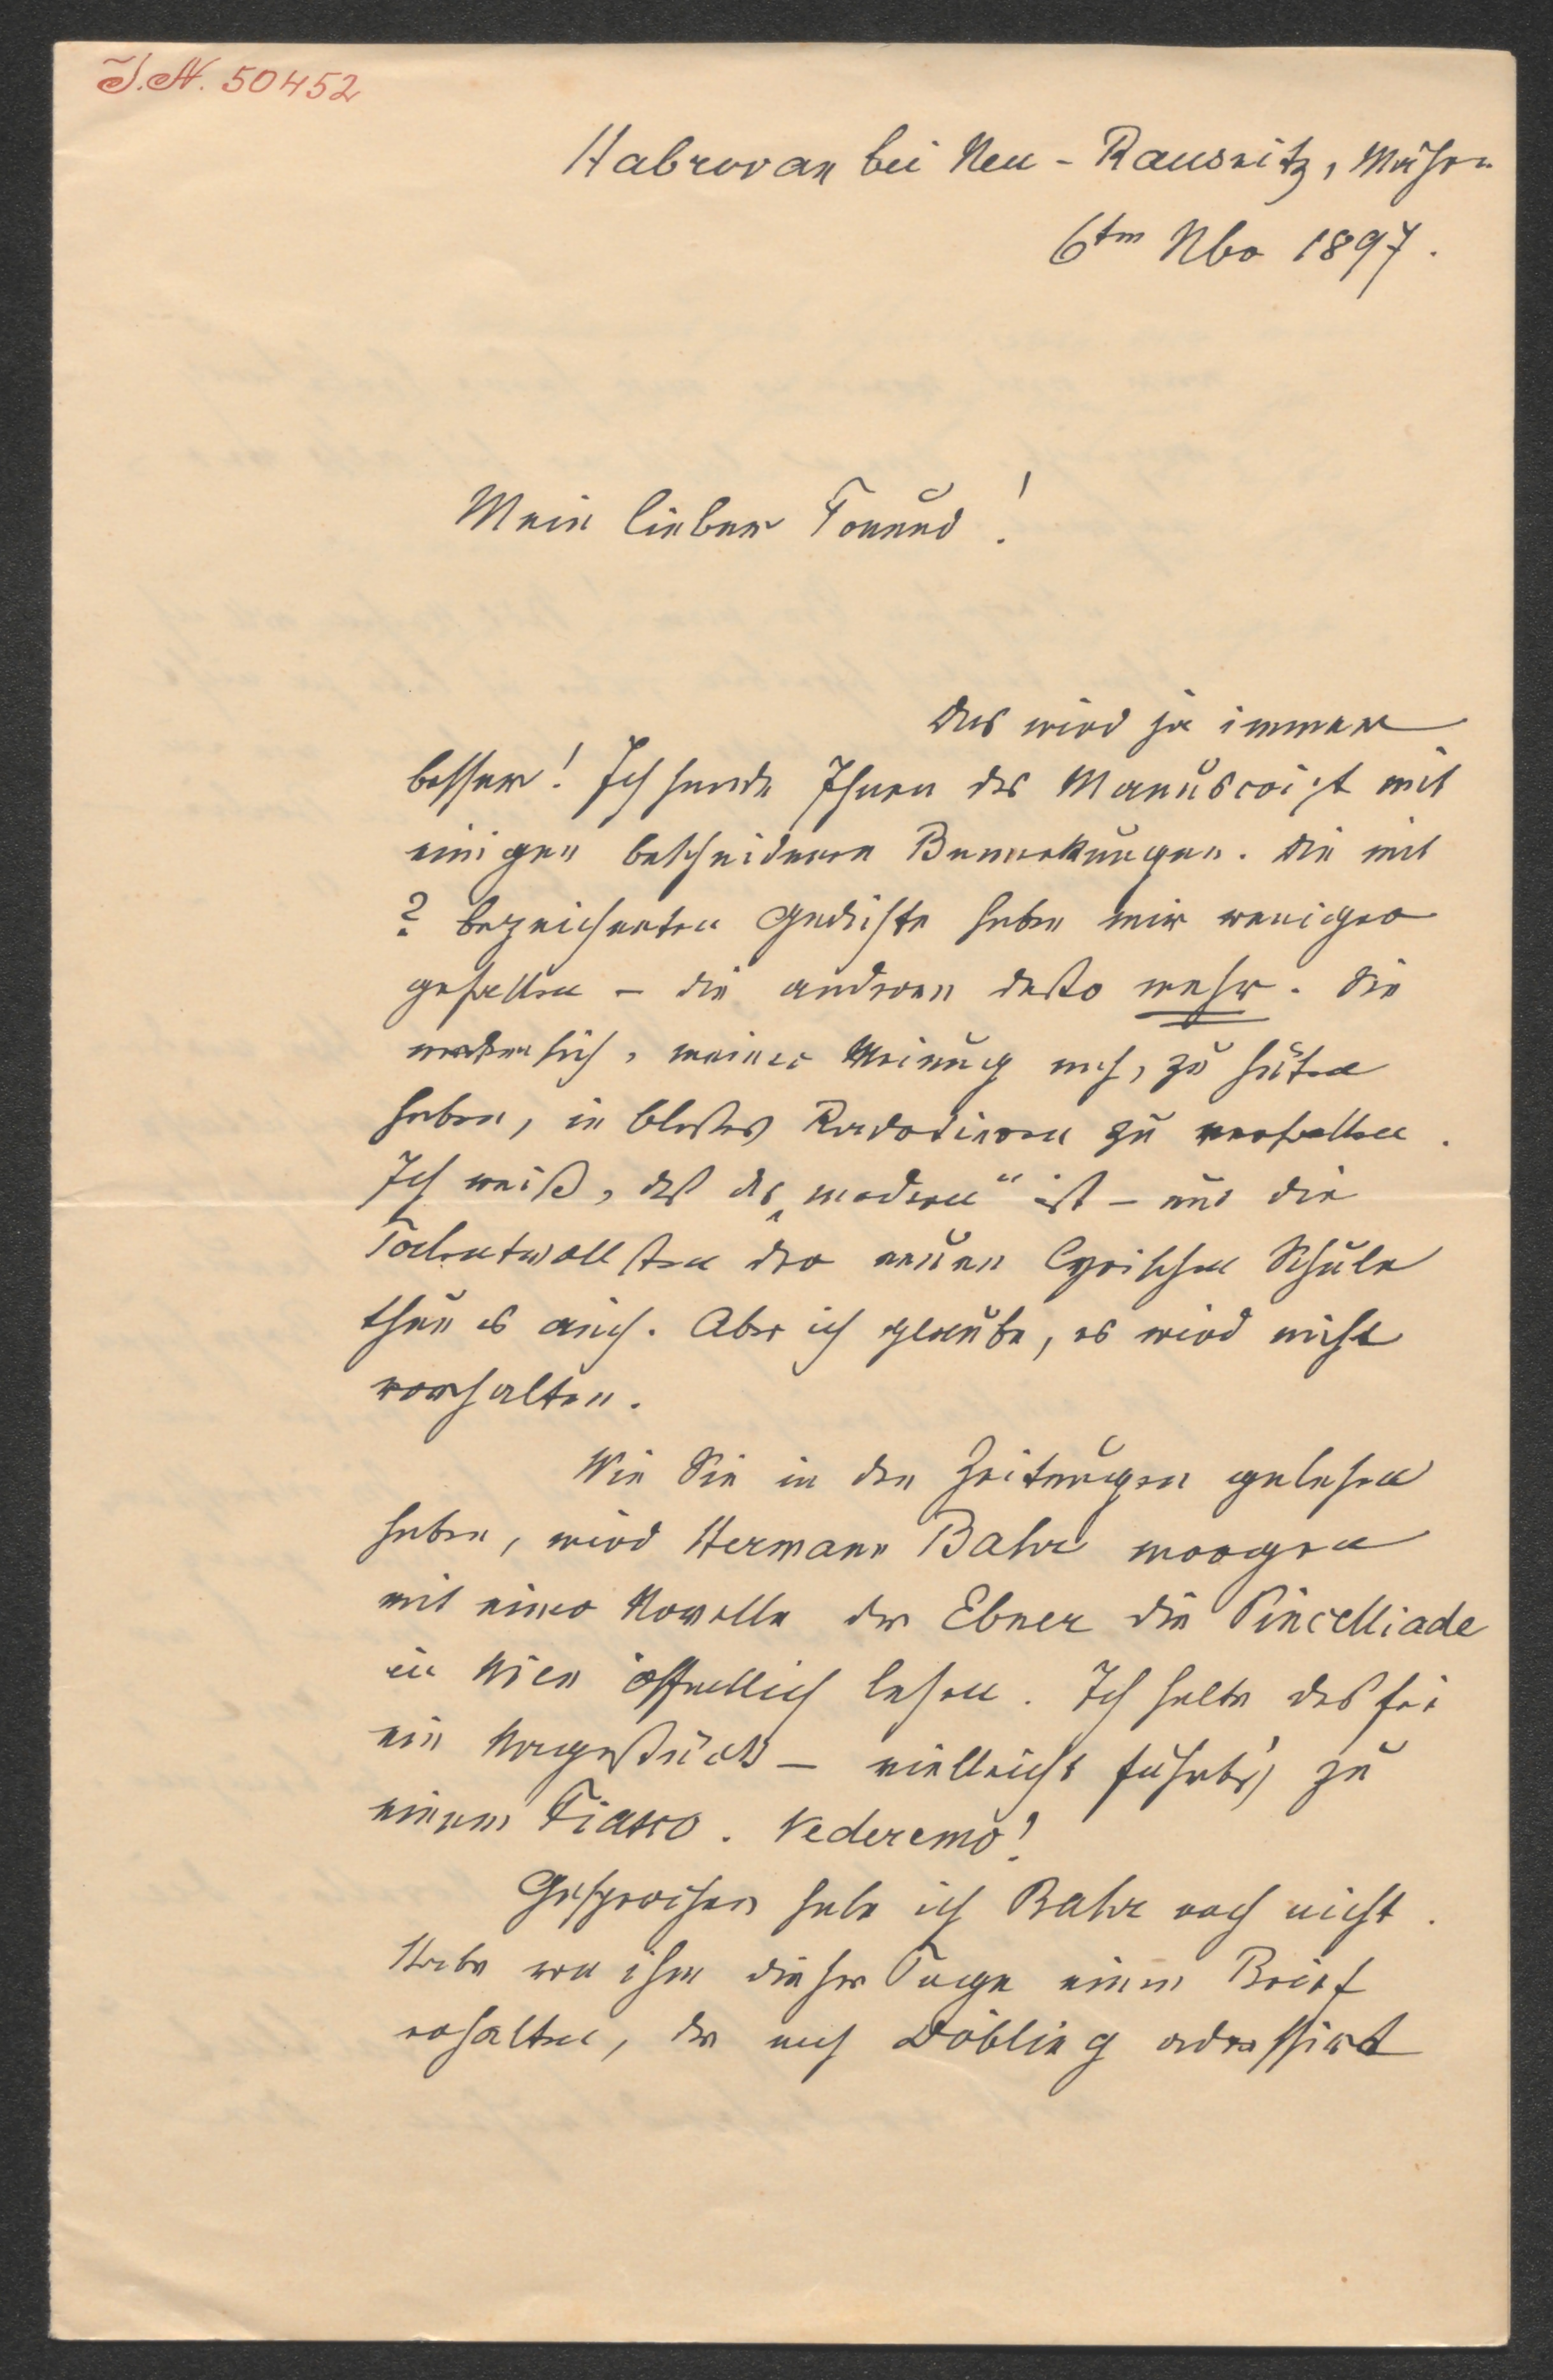 I.N. 50452
Habrovan bei Neu-Rausnitz, Mähren
6ten Nbr 1897.
Mein lieber Freund!
Das wird ja immer
besser! Ich sende Ihnen das Manuscript mit
einigen bescheidenen Bemerkungen. Die mit
? bezeichneten Gedichte haben mir weniger
gefallen – die anderen desto mehr. Sie
werden sich, meiner Meinung nach, zu hüten
haben, in bloßes zu verfallen.
Ich weiß, daß das „modern“ ist – und die
Talentvollsten der neuen lyrischen Schule
thun es auch. Aber ich glaube, es wird nicht
vorhalten.
Wie Sie in den Zeitungen gelesen
haben, wird Hermann Bahr morgen
mit einer Novelle der Ebner die Pincelliade
in Wien öffentlich lesen. Ich halte das für
ein Wagestück – vielleicht führt's zu
einem Fiasco. Vederemo!
Gesprochen habe ich Bahr noch nicht.
Habe von ihm dieser Tage einen Brief
erhalten, der nach Döbling adressirt